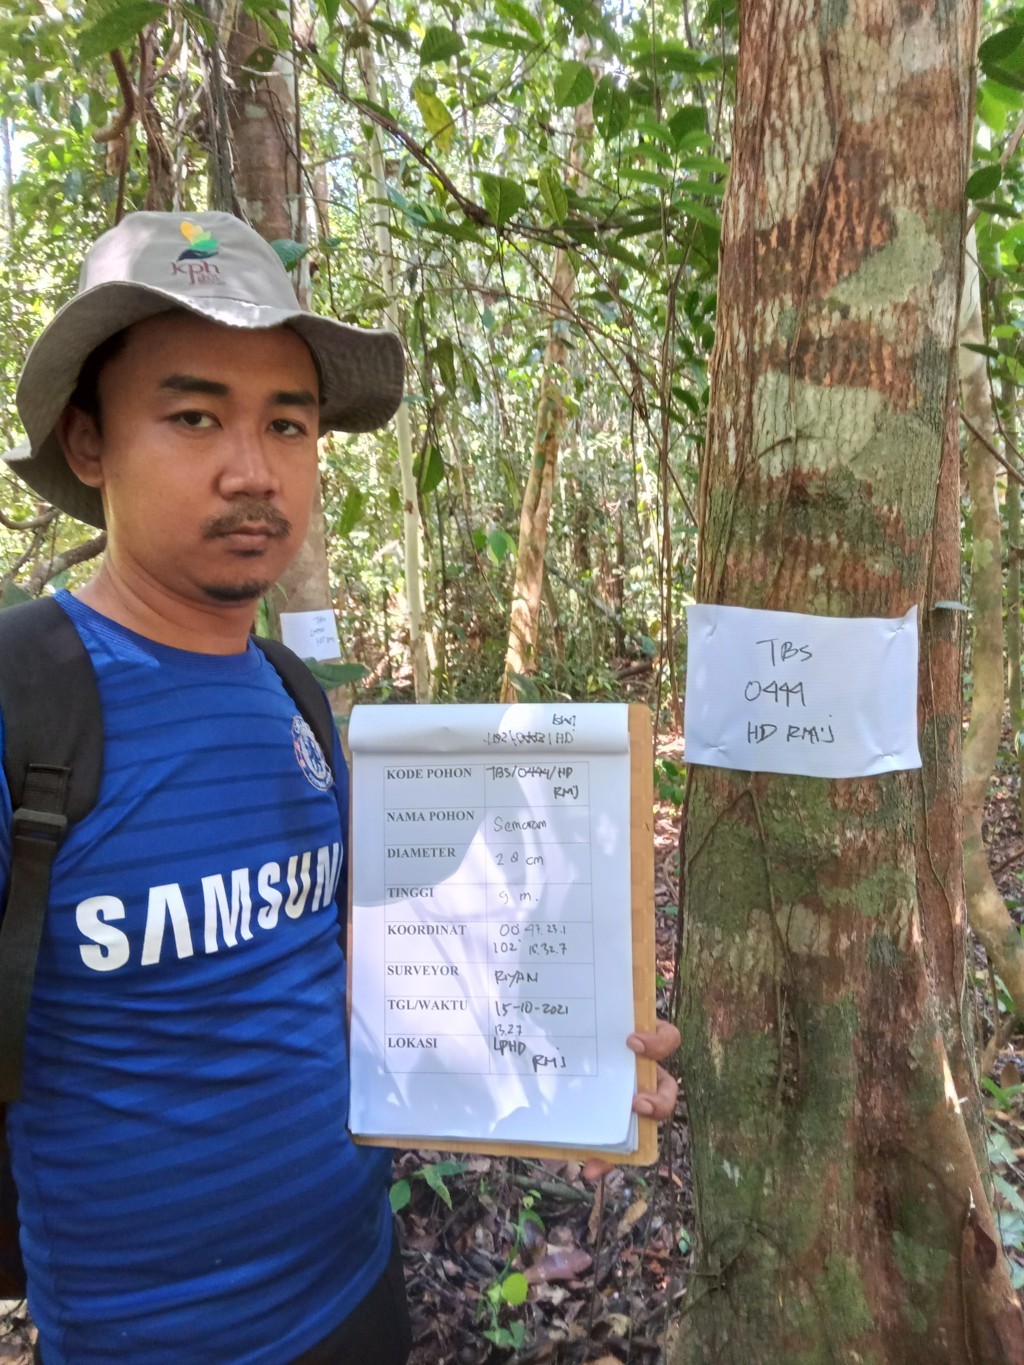 kph
SAMSUN
TBS
0444
HD RMJ
KODE POHON TBS/0444/HD
RMJ
NAMA POHON Semaram
DIAMETER 28 cm
TINGGI 9 m.
KOORDINAT 00° 47.23.1
102° 16.32.7
SURVEYOR RIYAN
TGL/WAKTU 15-10-2021
13.27
LOKASI LPHD
RMJ